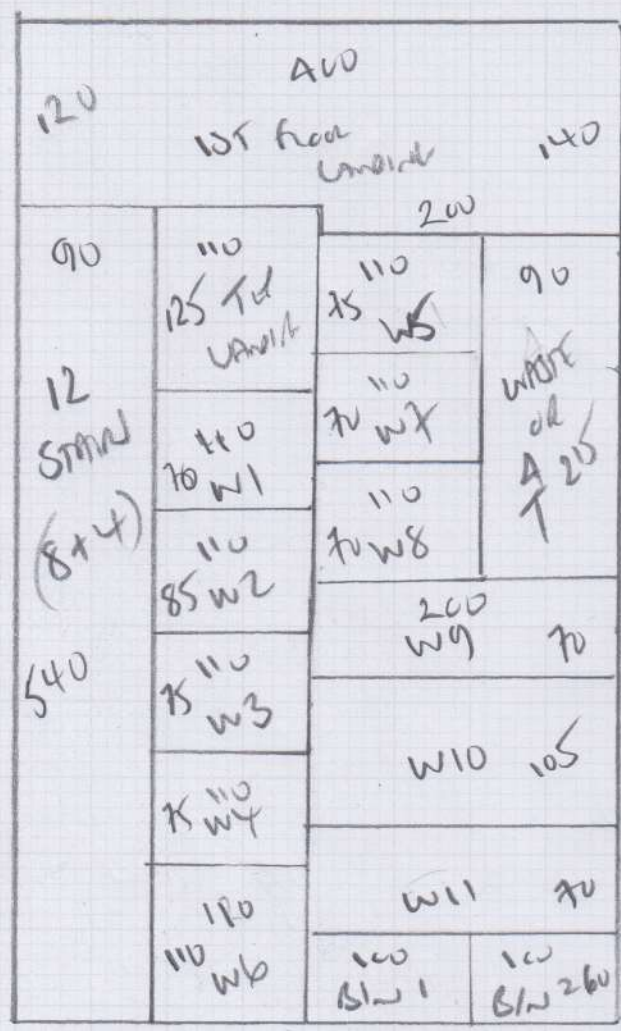 400
120
1ST Floor
LANDING
140
200
90
12
STAIRS
(8+4)
540
110
125 TOP
LANDING
110
70 W1
110
85 W2
110
75 W3
110
75 W4
110 W6
110
75 W5
110
70 W7
110
70 W8
90
WASTE
OR
A 215
T
200
W9 70
W10 105
W11 70
100
BIN 1
100
BIN 2 60